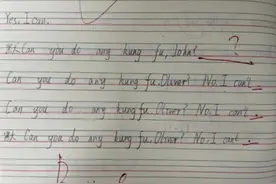 Yes, I can.
Can you do any kung fu, John? ?
Can you do any kung fu, Oliver? No, I can't.
Can you do any kung fu, Oliver? No, I can't.
Can you do any kung fu, Oliver? No, I can't.